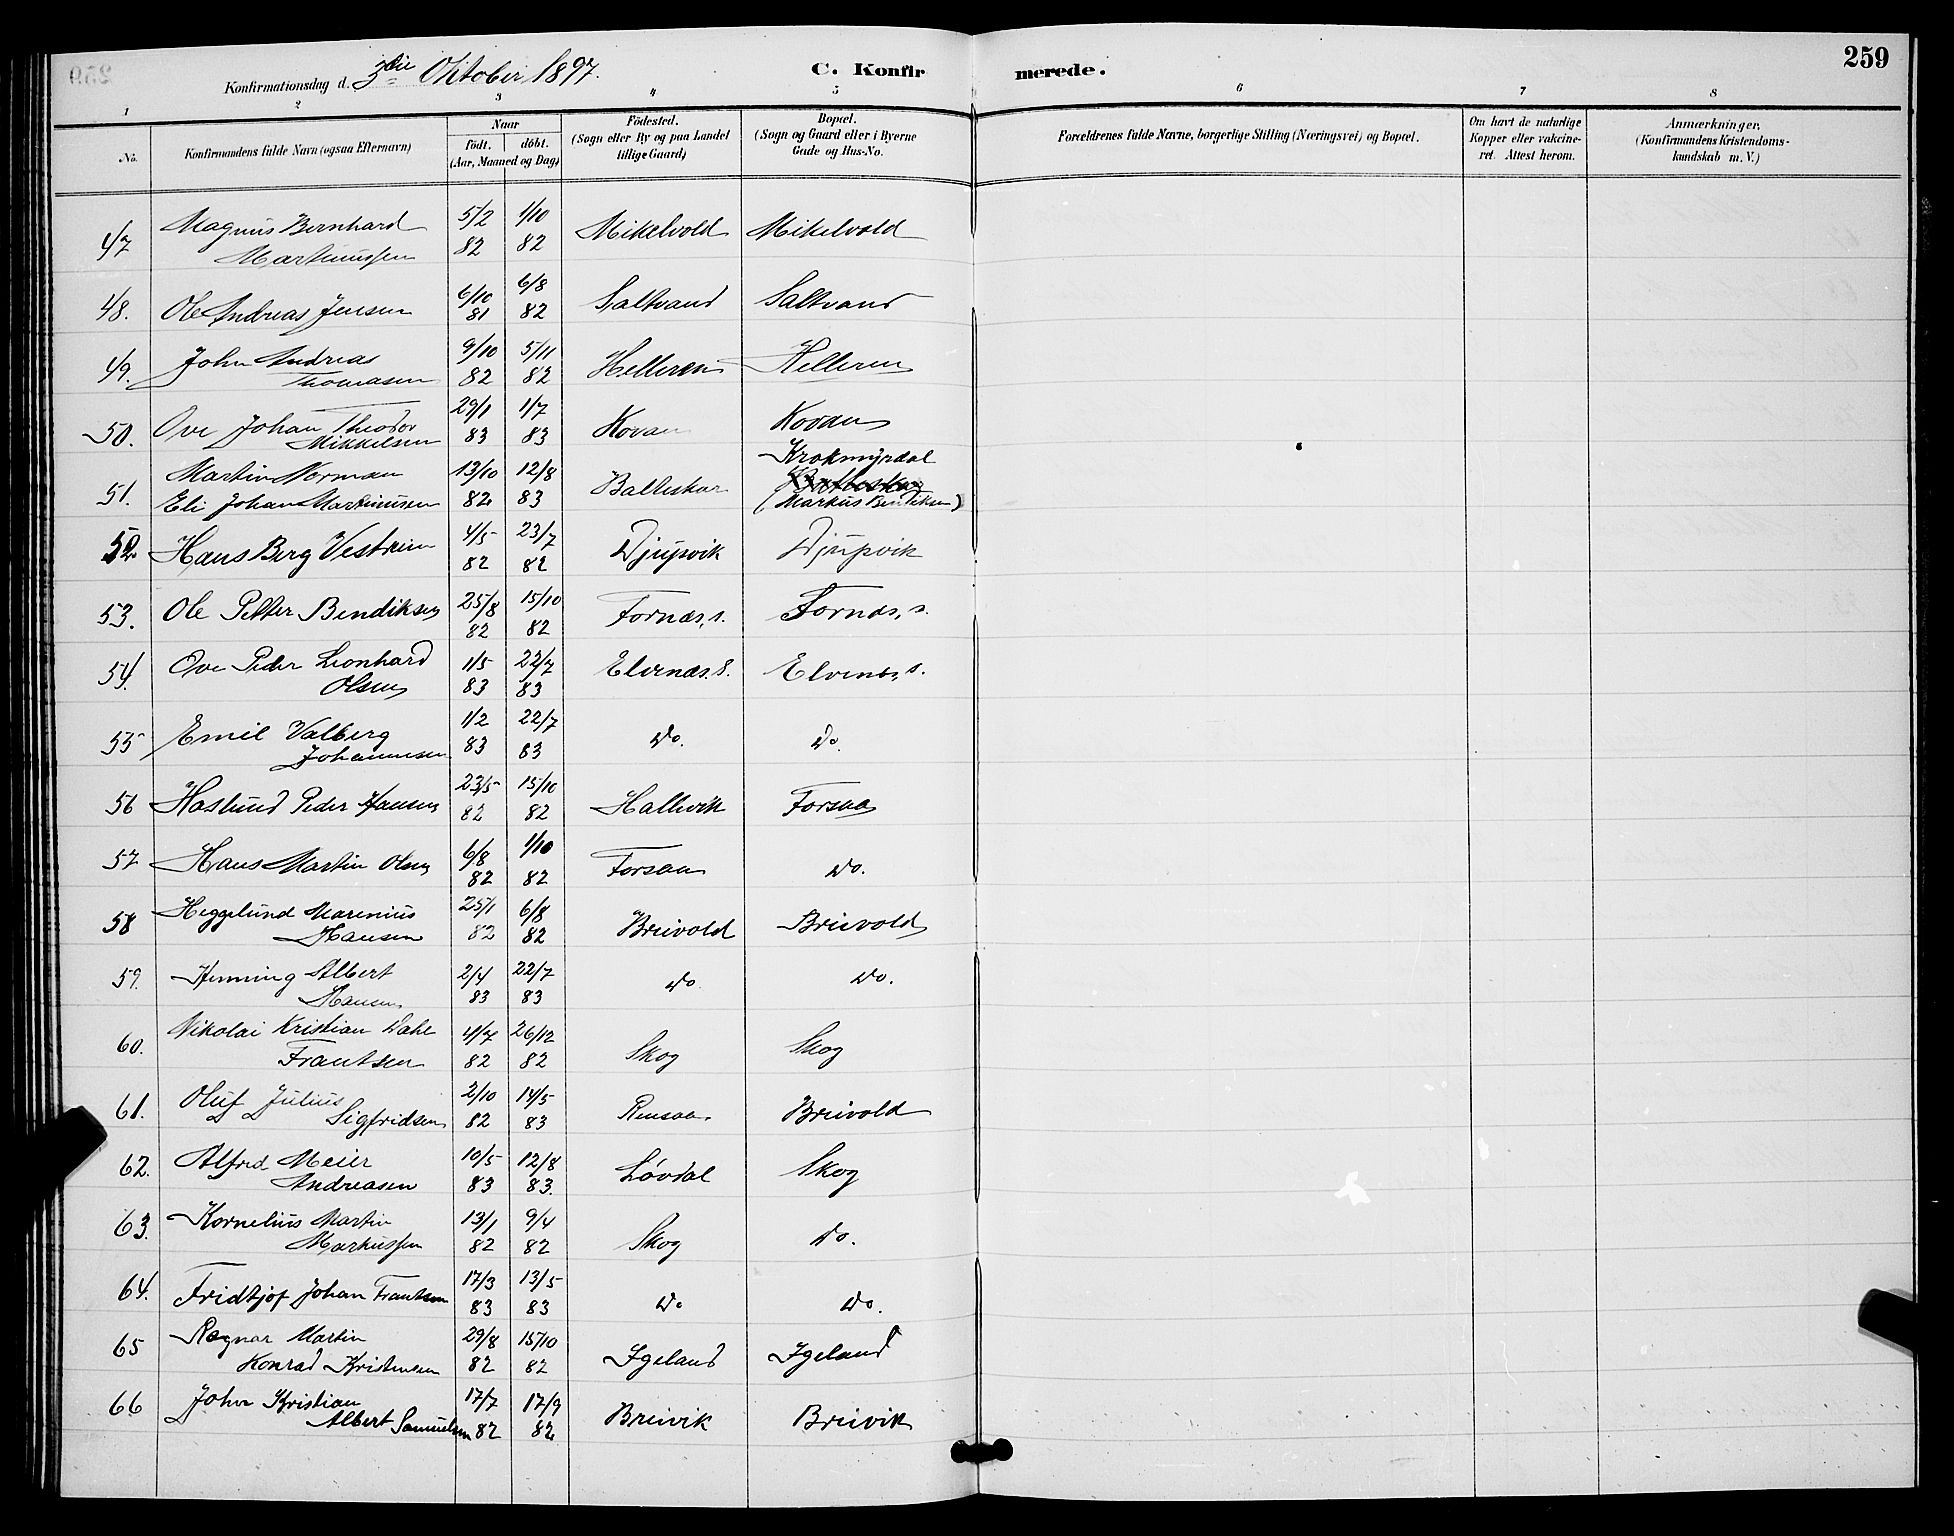 259
Konfirmationsdag d. 3die Oktober 1897.
C. Konfirmerede.
1 2 3 4 5 6 7 8
No.
Konfirmandens fulde Navn (ogsaa Efternavn)
Naar
födt. döbt.
(Aar, Maaned og Dag)
Födested.
(Sogn eller By og paa Landet
tillige Gaard)
Bopæl.
(Sogn og Gaard eller i Byerne
Gade og Hus-No.
Forældrenes fulde Navne, borgerlige Stilling (Næringsvei) og Bopæl.
Om havt de naturlige
Kopper eller vakcine-
ret. Attest herom.
Anmærkninger.
(Konfirmandens Kristendoms-
kundskab m. V.)
47 Magnus Bernhard Martinussen 5/2 82 1/10 82 Mikelvold Mikelvold
48. Ole Andreas Jensen 6/10 81 6/8 82 Saltvand Saltvand
49. John Andreas Thomasen 9/10 82 5/11 82 Helleren Helleren
50. Ove Johan Theodor Mikkelsen 29/1 83 1/7 83 Kovan Kovan
51. Martin Norman Eli Johan Martinusen 13/10 82 12/8 83 Balteskar Krokmyrdal (Markus Bendiksen)
52 Hans Berg Vestrum 4/5 82 23/7 82 Djupvik Djupvik
53. Ole Petter Bendiksen 25/8 82 15/10 82 Fornæs, s. Fornæs, s.
54. Ove Peder Leonhard Olsen 1/5 83 22/7 83 Elvenæs. s. Elvenæs, s.
55 Emil Valberg Johannesen 1/2 83 22/7 83 Do. Do.
56 Haslund Peder Hansen 23/5 82 15/10 82 Hallevik Forsaa
57 Hans Martin Olsen 6/8 82 1/10 82 Forsaa Do.
58 Heggelund Marenius Hansen 25/1 82 6/8 82 Breivold Breivold
59. Henning Albert Hansen 2/4 83 22/7 83 Do Do.
60. Nikolai Kristian Dahl Frantsen 4/7 82 26/12 82 Skog Skog
61. Oluf Julius Sigfridsen 2/10 82 14/5 83 Rensaa. Breivold
62. Alfred Meier Andreasen 10/5 83 12/8 83. Lövdal Skog
63. Kornelius Martin Markussen 13/1 82 9/4 82 Skog Do.
64. Fridtjof Johan Frantsen 17/3 83 13/5 83 Do Do.
65 Ragnar Martin Konrad Kristensen 29/8 82 15/10 82 Igeland Igeland
66 Johan Kristian Albert Samuelsen 17/7 82 17/9 82 Breivik Breivik